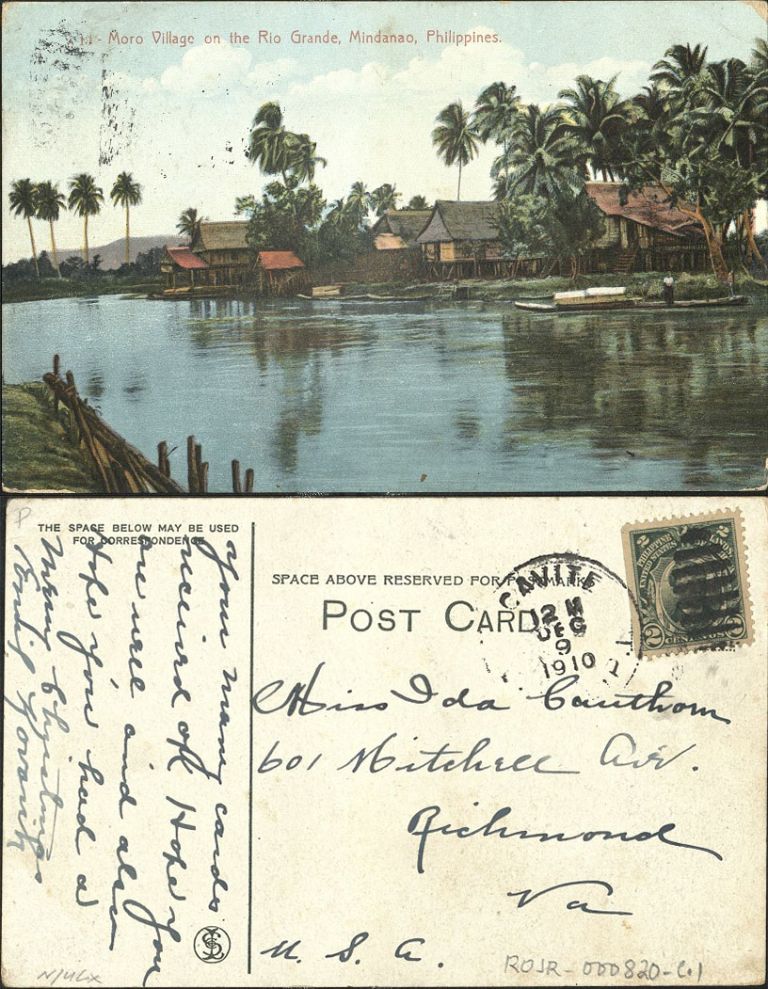 11- Moro Village on the Rio Grande, Mindanao, Philippines.
P
THE SPACE BELOW MAY BE USED
FOR CORRESPONDENCE
Your many cards
received OK Hope you
are well and also
hope you had a
Merry Christmas
SPACE ABOVE RESERVED FOR POSTMARK
POST CARD
CAVITE
12 M
DEC
9
1910
PHILIPPINE ISLANDS
UNITED STATES OF
2 CENTAVOS 2
Miss Ida Cauthorn
601 Mitchell Ave.
Richmond
Va
U. S. A.
ROJR-000820-C.1